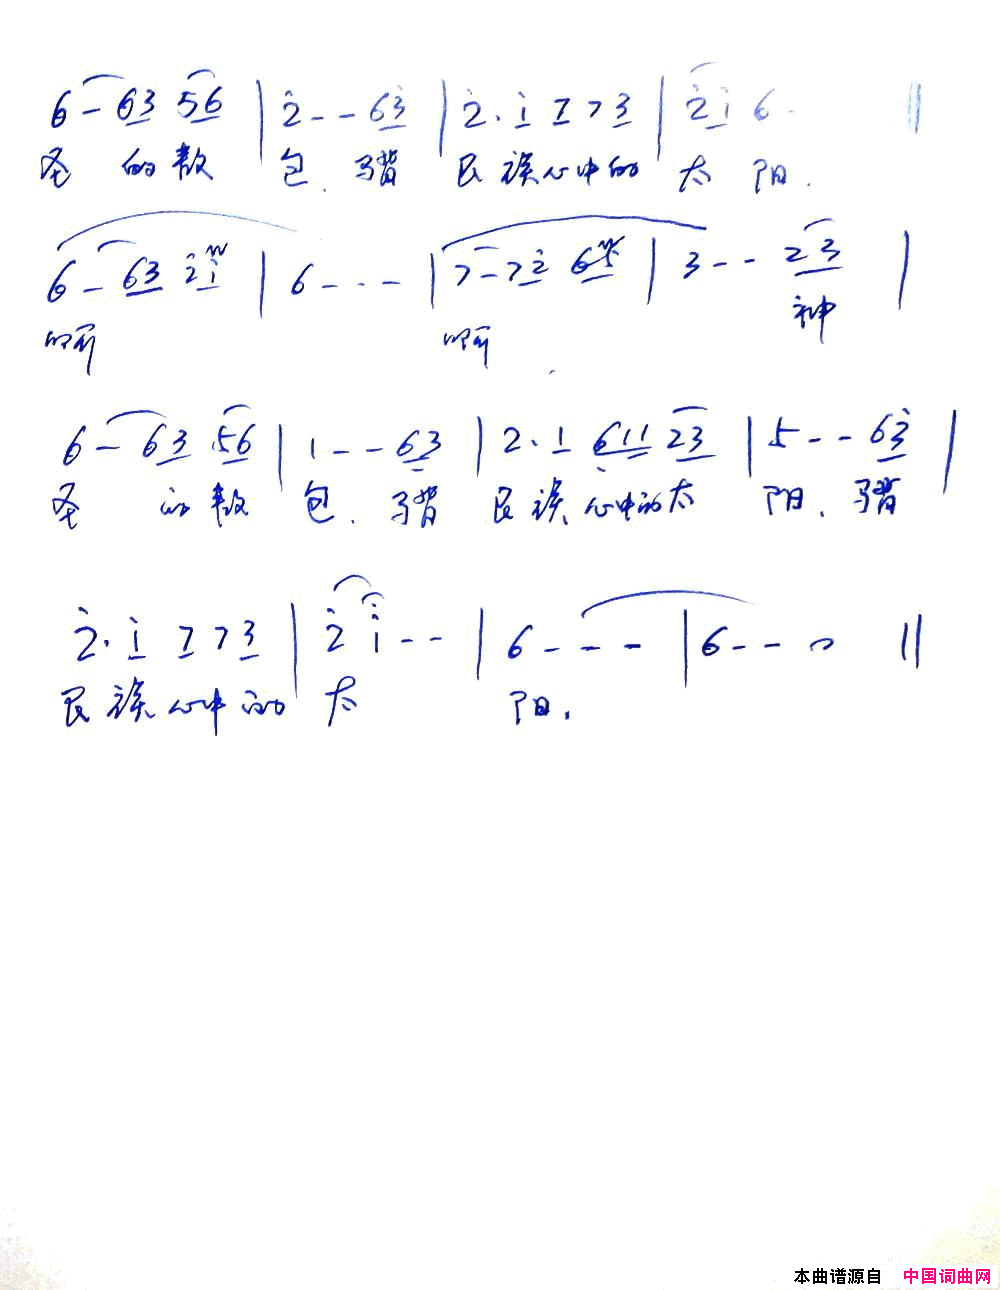 6 - 63 56 | 2̇ - - 63̇ | 2̇. 1̇ 7 7 3 | 2̇ 1̇ 6 - ||
圣 的敖 包. 马背 民族心中的 太 阳.
6 - 63 2̇ 1̇ | 6 - - - | 7 - 72̇ 65 | 3 - - 23 |
啊 啊 神
6 - 63 56 | 1 - - 63 | 2. 1 611 23 | 5 - - 63̇ |
圣 的敖 包. 马背 民族心中的太 阳. 马背
2̇. 1̇ 7 7 3 | 2̇ 1̇ - - | 6 - - - | 6 - - 0 ||
民族心中的 太 阳.
本曲谱源自 中国词曲网